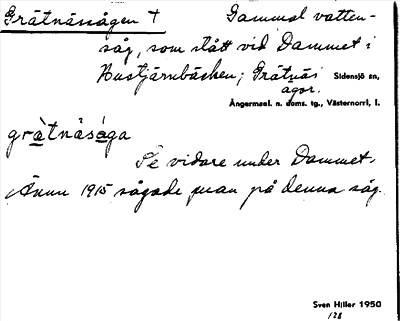 Grätnässågen † Gammal vatten-
såg, som stått vid Dammet i
Bustjärnbäcken; Grätnäs Sidensjö sn,
ägor.
Ångermanl. n. doms. tg., Västernorrl. l.
grà̱tnäså̱ga
Se vidare under Dammet.
Ännu 1915 sågade man på denna såg.
Sven Hiller 1950
128